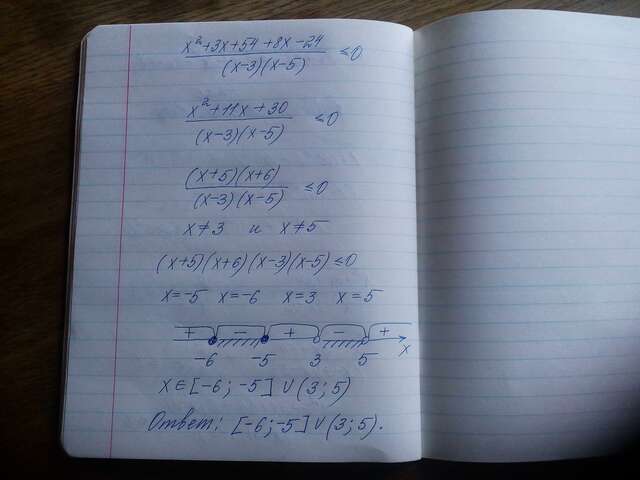 x²+3x+54+8x-24
(x-3)(x-5) ≤0
x²+11x+30
(x-3)(x-5) ≤0
(x+5)(x+6)
(x-3)(x-5) ≤0
x≠3 и x≠5
(x+5)(x+6)(x-3)(x-5)≤0
x=-5 x=-6 x=3 x=5
+ - + - +
-6 -5 3 5 x
x∈[-6;-5]∪(3;5)
Ответ: [-6;-5]∪(3;5).